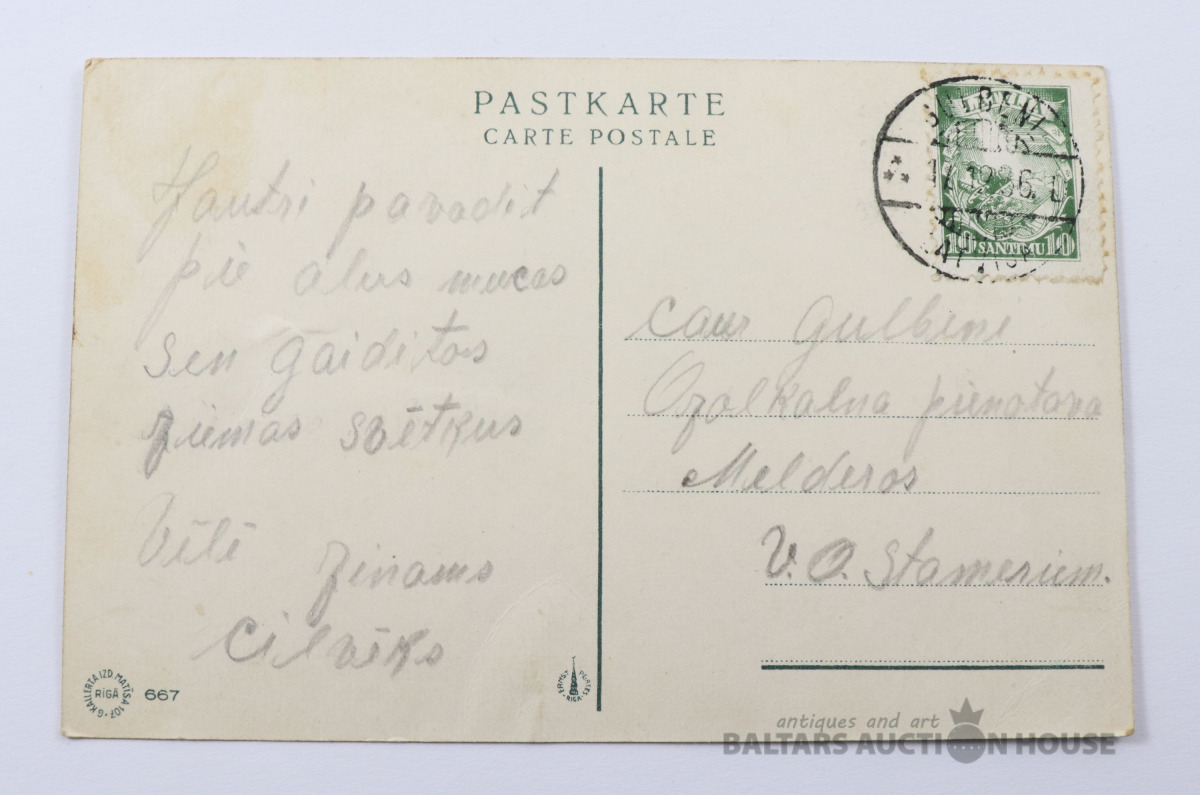 PASTKARTE
CARTE POSTALE
Jautri pavadit
pie alus mucas
sen gaiditos
ziemas svētkus
Vēlē zinams
cilvēks
G. KAILERTA IZD. MATĪSA 107
RĪGĀ
667
ERNST PLATES
RIGA
LATVIJA
12.36. D
10 SANTIMU 10
caur Gulbeni
Ozolkalna pienotava
Melderos
V. O. Stameriem.
antiques and art
BALTARS AUCTION HOUSE